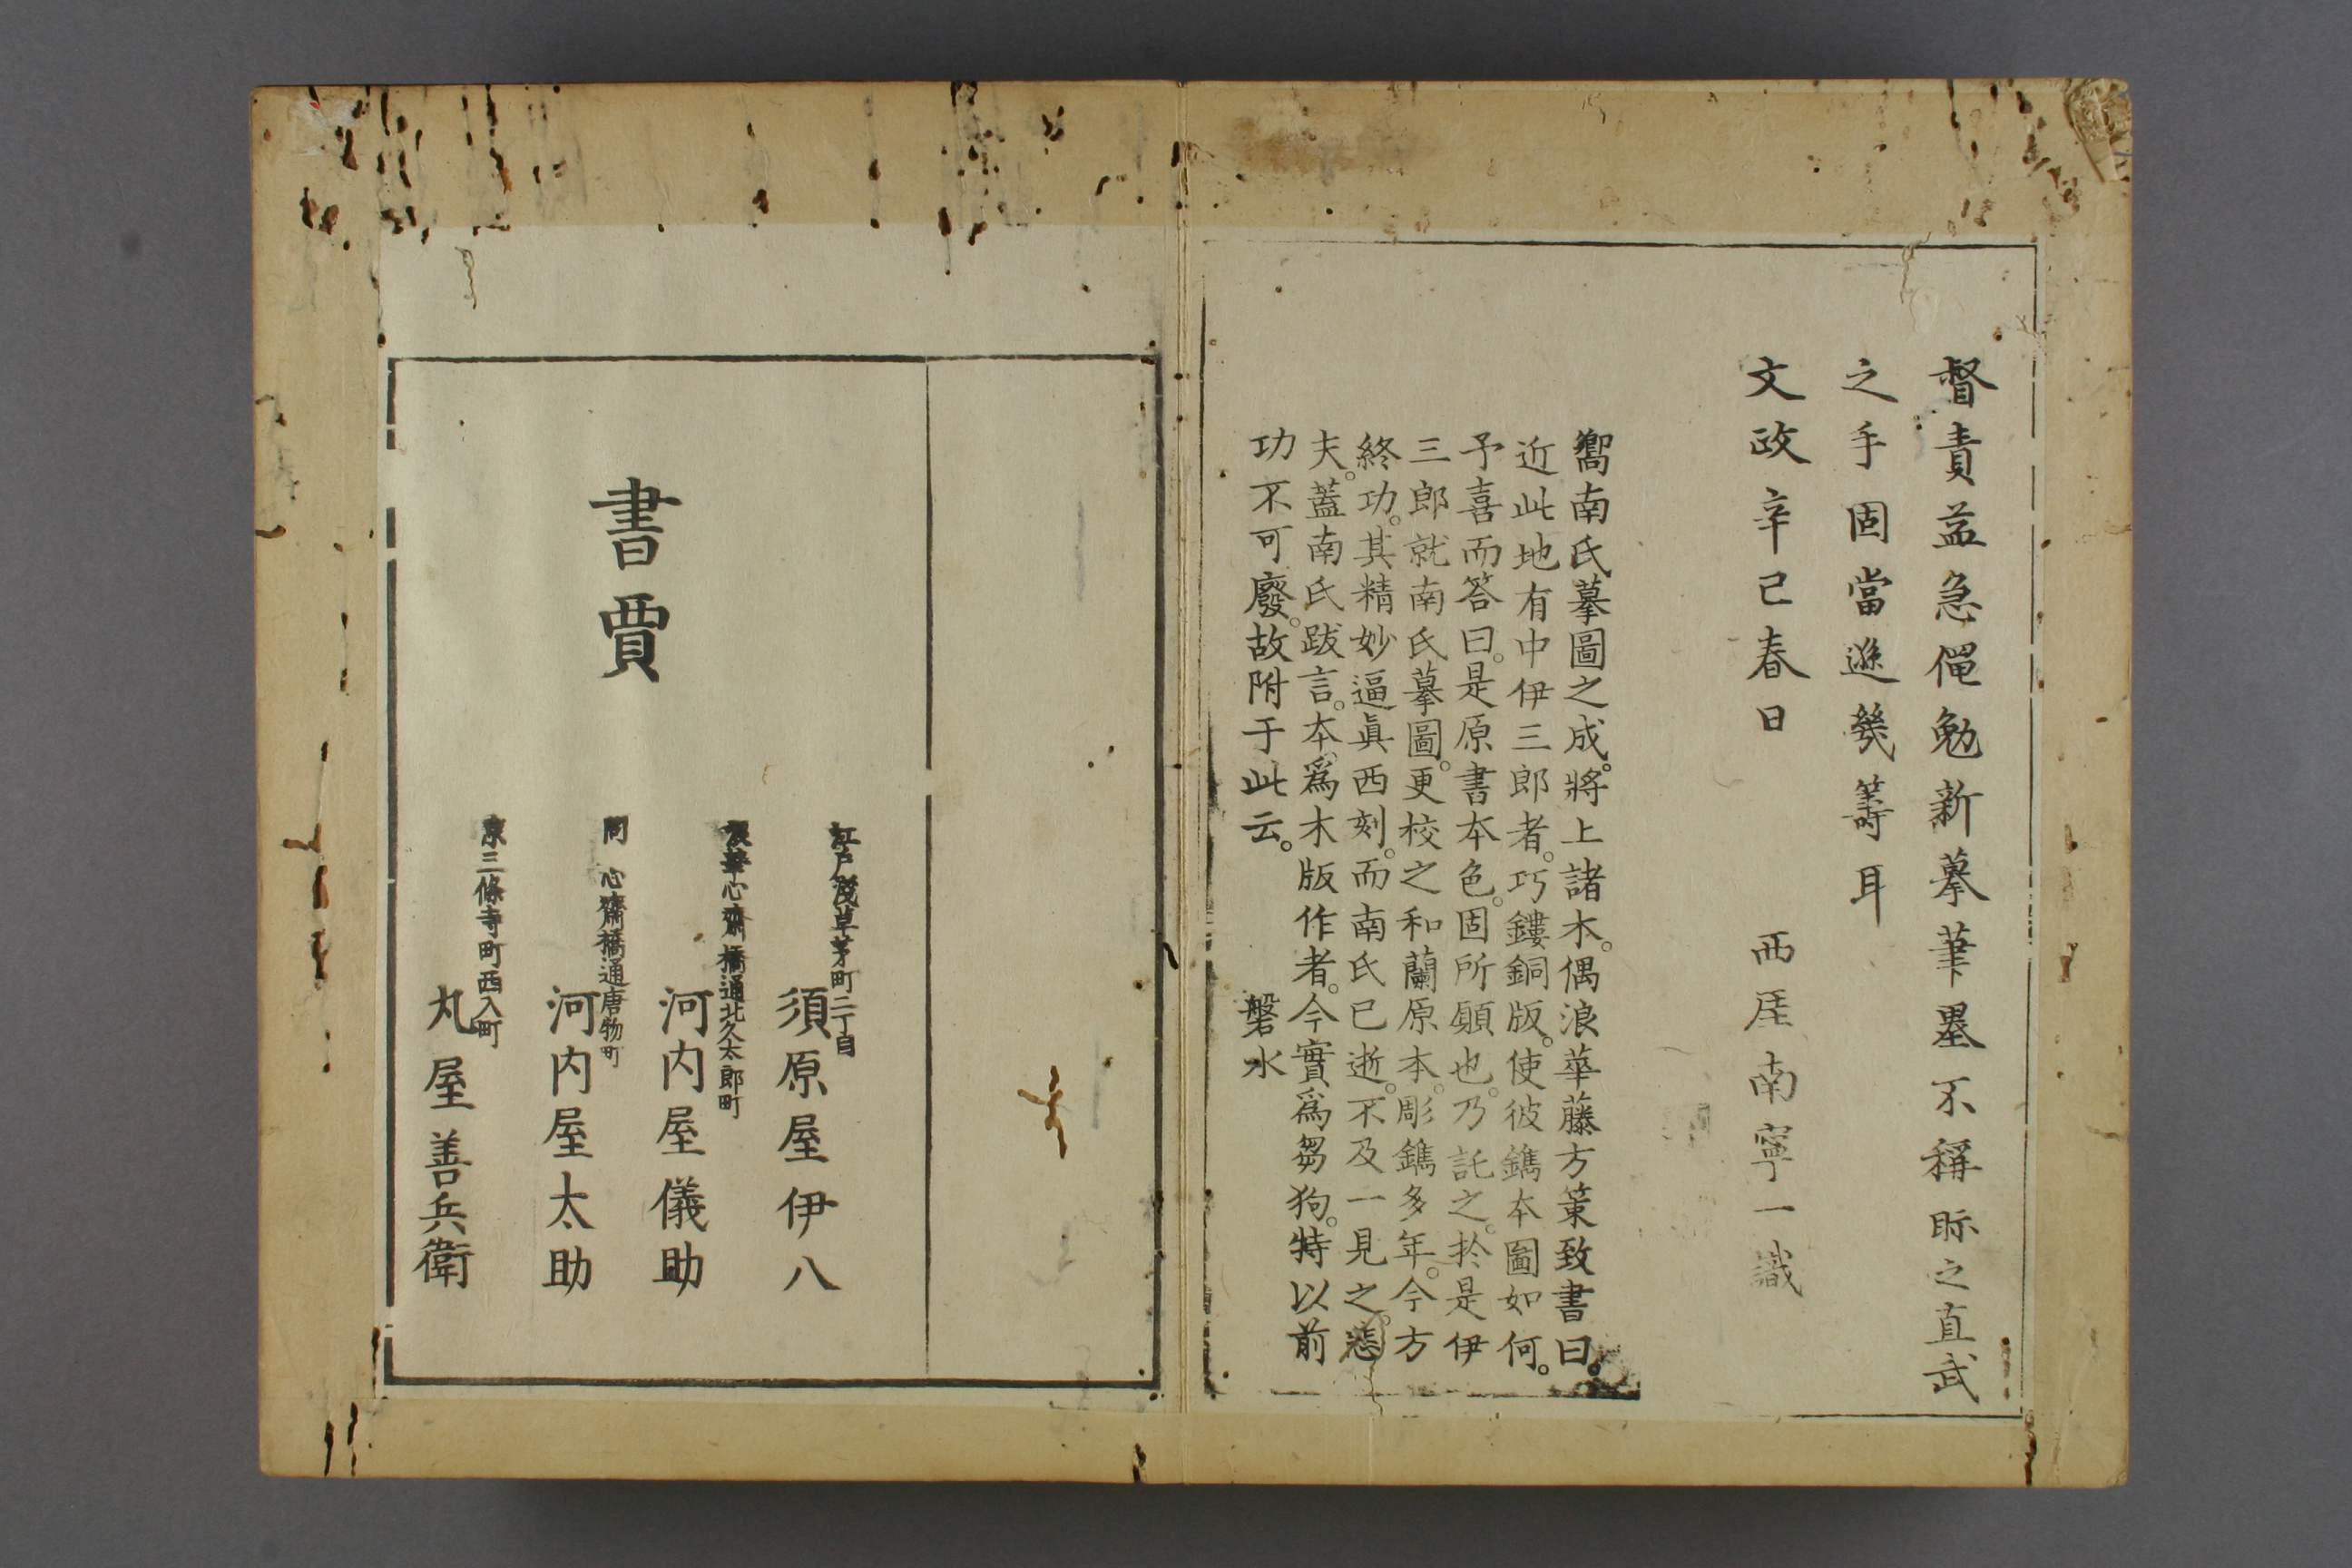 督責益急僶勉新摹筆墨不稱眎之直武
之手固當遜幾籌耳
文政辛己春日　西厓南寧一識
嚮南氏摹圖之成。將上諸木。偶浪華藤方策致書曰。
近此地有中伊三郎者。巧鏤銅版。使彼鐫本圖如何。
予喜而答曰。是原書本色。固所願也。乃託之。於是伊
三郎就南氏摹圖。更校之和蘭原本。彫鐫多年。今方
終功。其精妙逼眞西刻。而南氏已逝。不及一見之。悲
夫。蓋南氏跋言。本爲木版作者。今實爲芻狗。特以前
功不可廢。故附于此云。　磐水
書賈
江戸淺草茅町二丁目
須原屋伊八
浪華心齋橋通北久太郎町
河内屋儀助
同　心齋橋通唐物町
河内屋太助
京三條寺町西入町
丸屋善兵衛